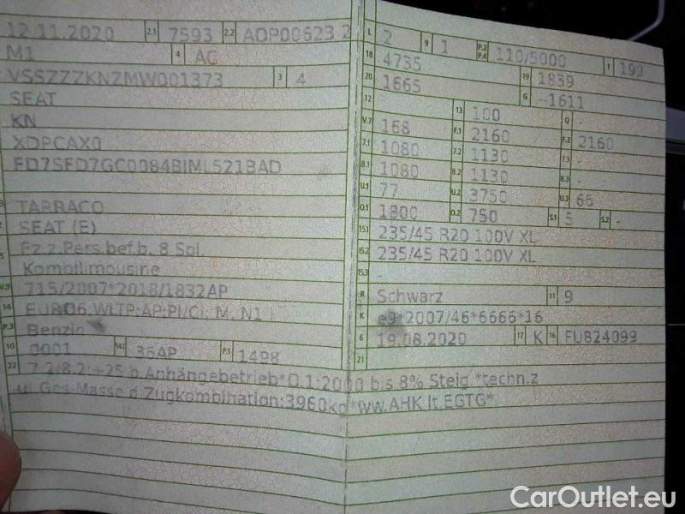 12.11.2020 2.1 7593 2.2 ADP00623 2
M1 4 AC
VSSZZZKNZMW001373 3 4
SEAT
KN
XDPCAX0
FD7SFD7GC0084BIML521BAD
TARRACO
SEAT (E)
Fz.z.Pers.bef.b. 8 Spl.
Kombilimousine
715/2007*2018/1832AP
EURO6;WLTP;AP;PI/CI; M, N1
Benzin
10 0001 36AP P.1 1498
L 2 9 1 P.2 P.4 110/5000 T 199
18 4735 19 1839
20 1665 G -1611
12 13 100 Q -
V.7 168 F.1 2160 F.2 2160
7.1 1080 7.2 1130 7.3 -
8.1 1080 8.2 1130 8.3 -
U.1 77 U.2 3750 U.3 66
O.1 1800 O.2 750 S.1 5 S.2 -
15.1 235/45 R20 100V XL
15.2 235/45 R20 100V XL
15.3 -
R Schwarz 11 9
K e9*2007/46*6666*16
6 19.08.2020 17 K 16 FU824099
21
22 7.2/8.2:+25 b.Anhängebetrieb*O.1:2000 bis 8% Steig.*techn.z
ul. Ges.Masse d.Zugkombination:3960kg*ww.AHK lt.EGTG*
CarOutlet.eu